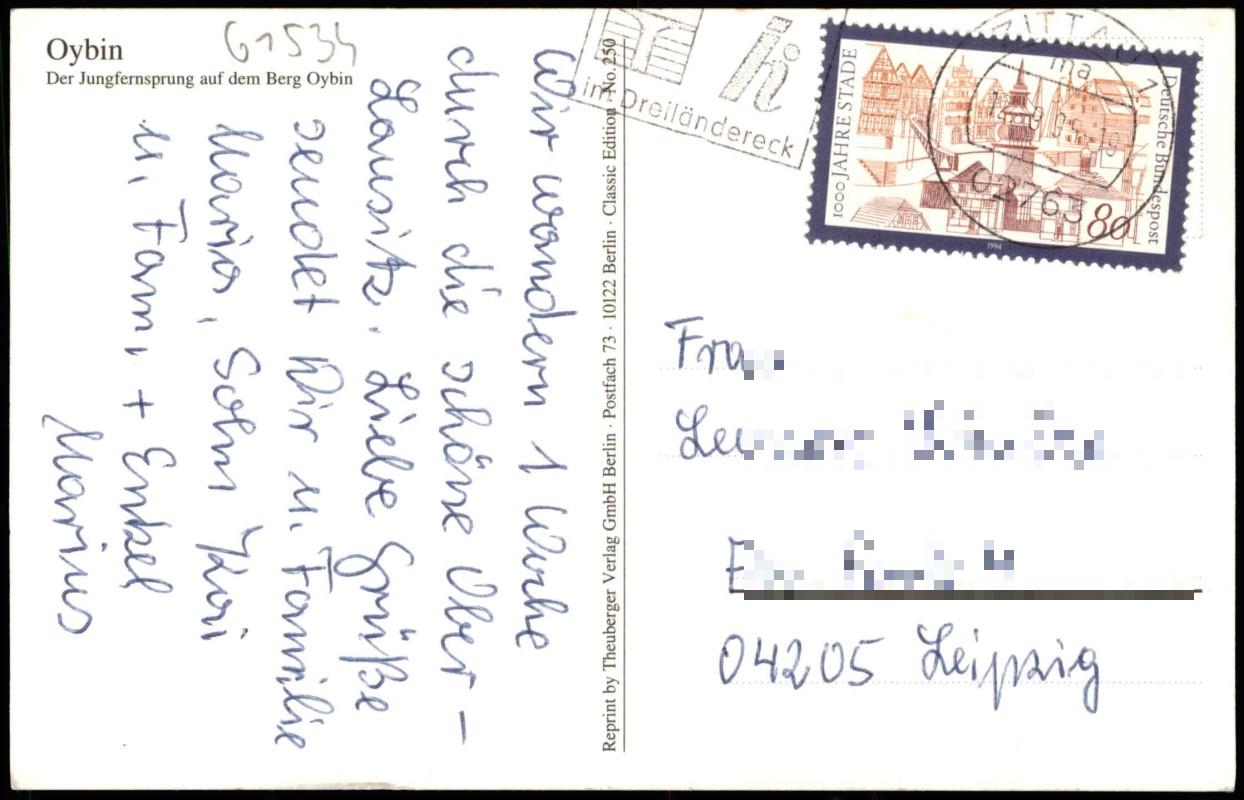 Oybin
Der Jungfernsprung auf dem Berg Oybin
G1534
Wir wandern 1 Woche
durch die schöne Ober-
Lausitz. Liebe Grüße
sendet Wir u. Familie
Mario, Sohn Kai
u. Fam. + Enkel
Marius
Reprint by Theuberger Verlag GmbH Berlin · Postfach 73 · 10122 Berlin · Classic Edition · No. 250
im Dreiländereck
1000 JAHRE STADE
Deutsche Bundespost
80
1994
ZITTAU 1
ma
02763
Fra
Le
04205 Leipzig